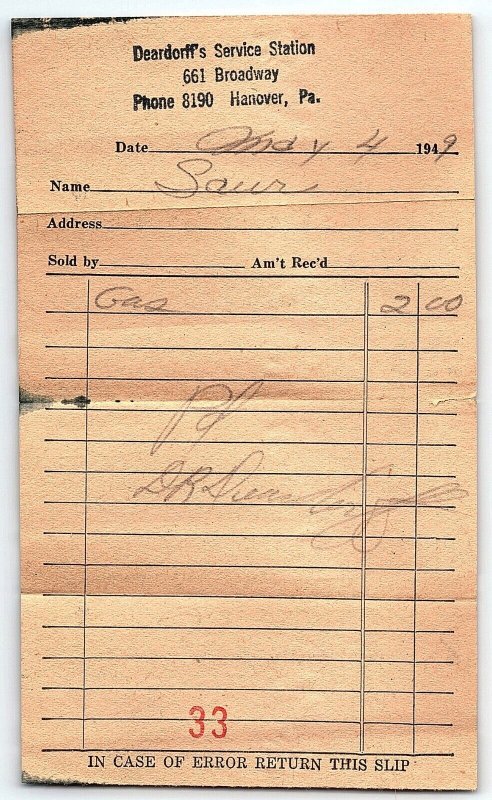 Deardorff's Service Station
661 Broadway
Phone 8190 Hanover, Pa.
Date May 4 1949
Name
Address
Sold by Am't Rec'd
Gas 2 00
Pd
33
IN CASE OF ERROR RETURN THIS SLIP